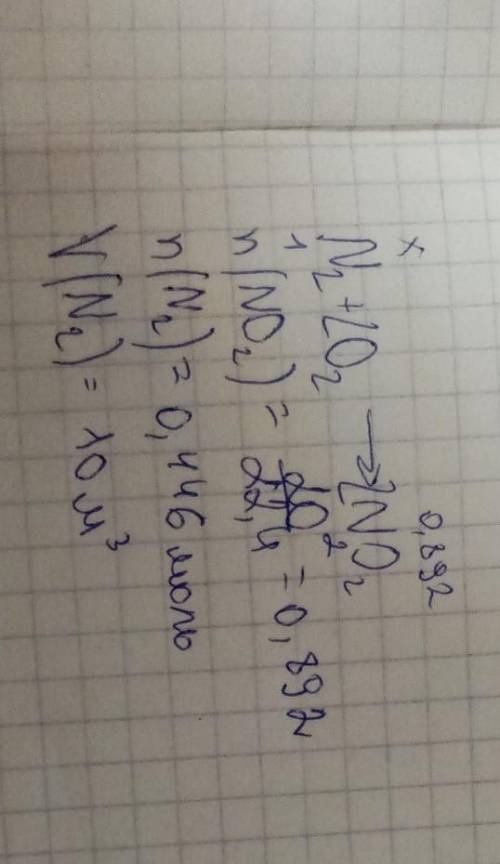 x 0,892
N₂ + 2O₂ → 2NO₂
1 2
n(NO₂) = 20/22,4 = 0,892
n(N₂) = 0,446 моль
V(N₂) = 10 м³